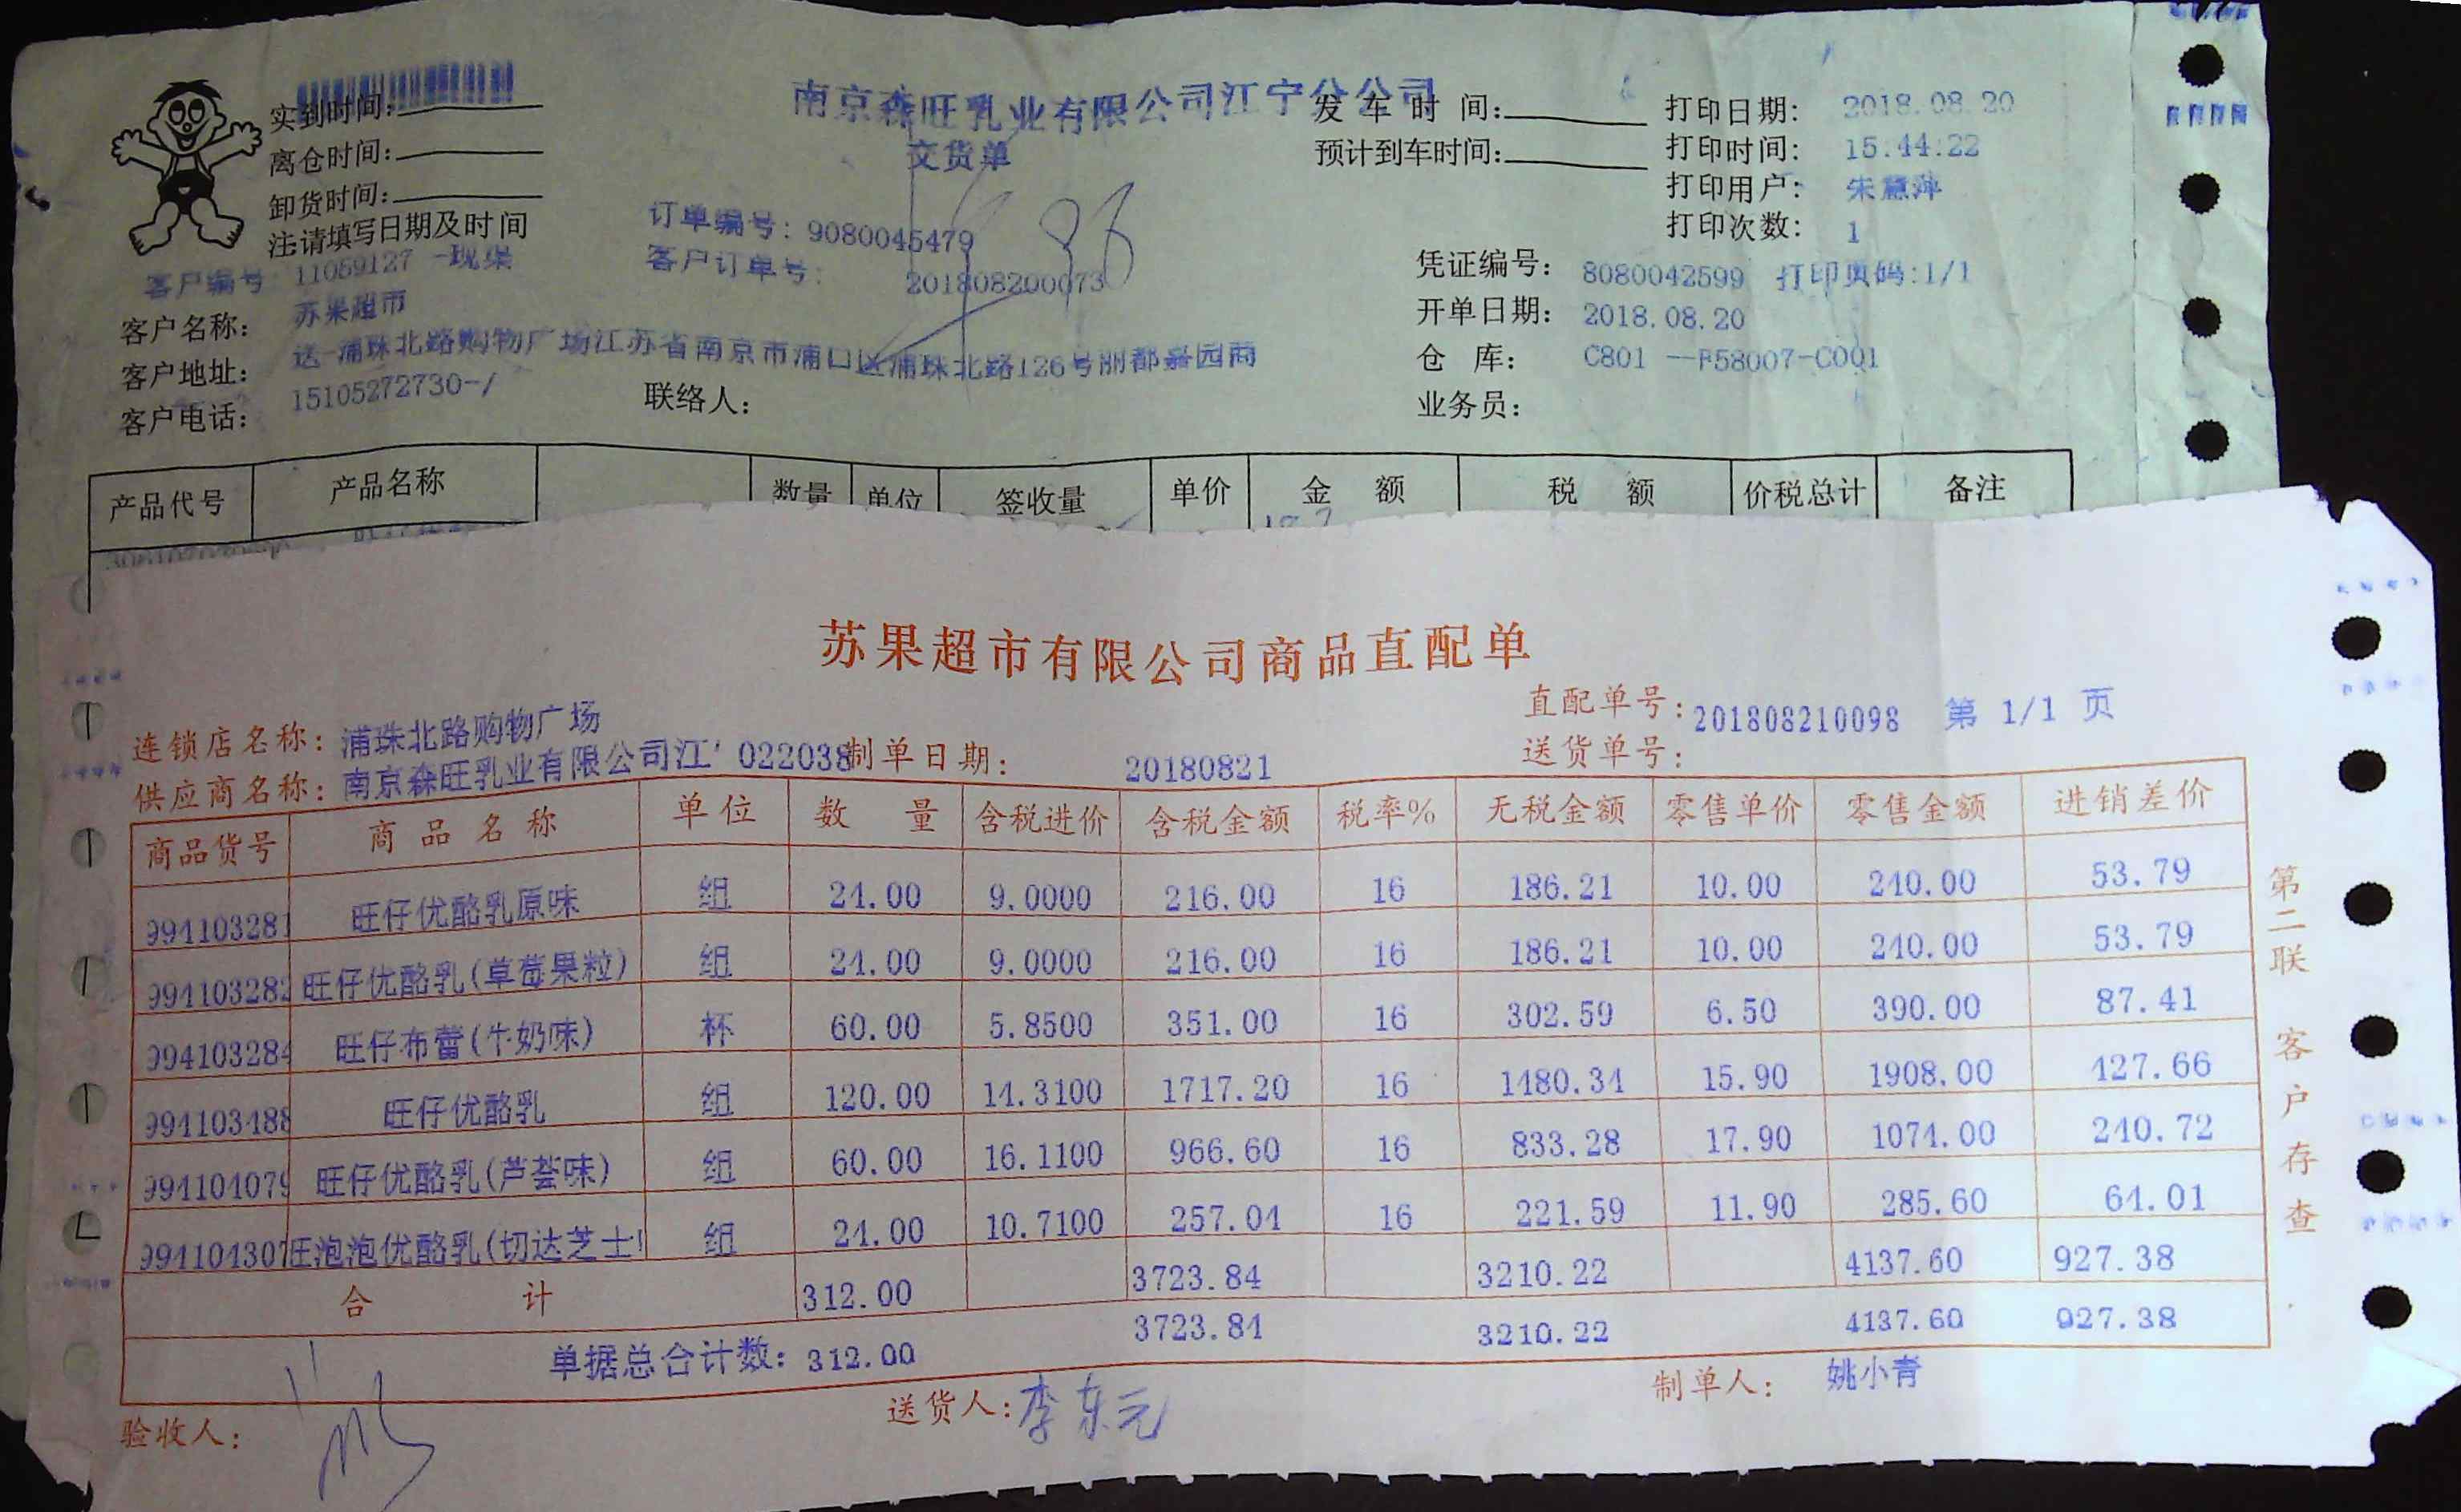 南京森旺乳业有限公司江宁分公司
交货单
实到时间:
离仓时间:
卸货时间:
注请填写日期及时间
发车时间:
预计到车时间:
打印日期: 2018.08.20
打印时间: 15:44:22
打印用户: 朱慧萍
打印次数: 1
订单编号: 9080045479
客户订单号: 201808200073
客户编号 11059127 -现渠
客户名称: 苏果超市
客户地址: 送-浦珠北路购物广场江苏省南京市浦口区浦珠北路126号丽都嘉园商
客户电话: 15105272730-/
联络人:
凭证编号: 8080042599 打印页码:1/1
开单日期: 2018.08.20
仓 库: C801 --F58007-C001
业务员:
产品代号 产品名称 数量 单位 签收量 单价 金 额 税 额 价税总计 备注
苏果超市有限公司商品直配单
连锁店名称: 浦珠北路购物广场
直配单号: 201808210098 第 1/1 页
供应商名称: 南京森旺乳业有限公司江' 022038 制单日期: 20180821 送货单号:
商品货号 商品名称 单位 数 量 含税进价 含税金额 税率% 无税金额 零售单价 零售金额 进销差价
994103281 旺仔优酪乳原味 组 24.00 9.0000 216.00 16 186.21 10.00 240.00 53.79
994103282 旺仔优酪乳(草莓果粒) 组 24.00 9.0000 216.00 16 186.21 10.00 240.00 53.79
994103284 旺仔布蕾(牛奶味) 杯 60.00 5.8500 351.00 16 302.59 6.50 390.00 87.41
994103488 旺仔优酪乳 组 120.00 14.3100 1717.20 16 1480.34 15.90 1908.00 427.66
994104079 旺仔优酪乳(芦荟味) 组 60.00 16.1100 966.60 16 833.28 17.90 1074.00 240.72
994104307 旺泡泡优酪乳(切达芝士 组 24.00 10.7100 257.04 16 221.59 11.90 285.60 64.01
合 计 312.00 3723.84 3210.22 4137.60 927.38
单据总合计数: 312.00 3723.84 3210.22 4137.60 927.38
验收人:
送货人: 李东元
制单人: 姚小青
第二联 客户存查